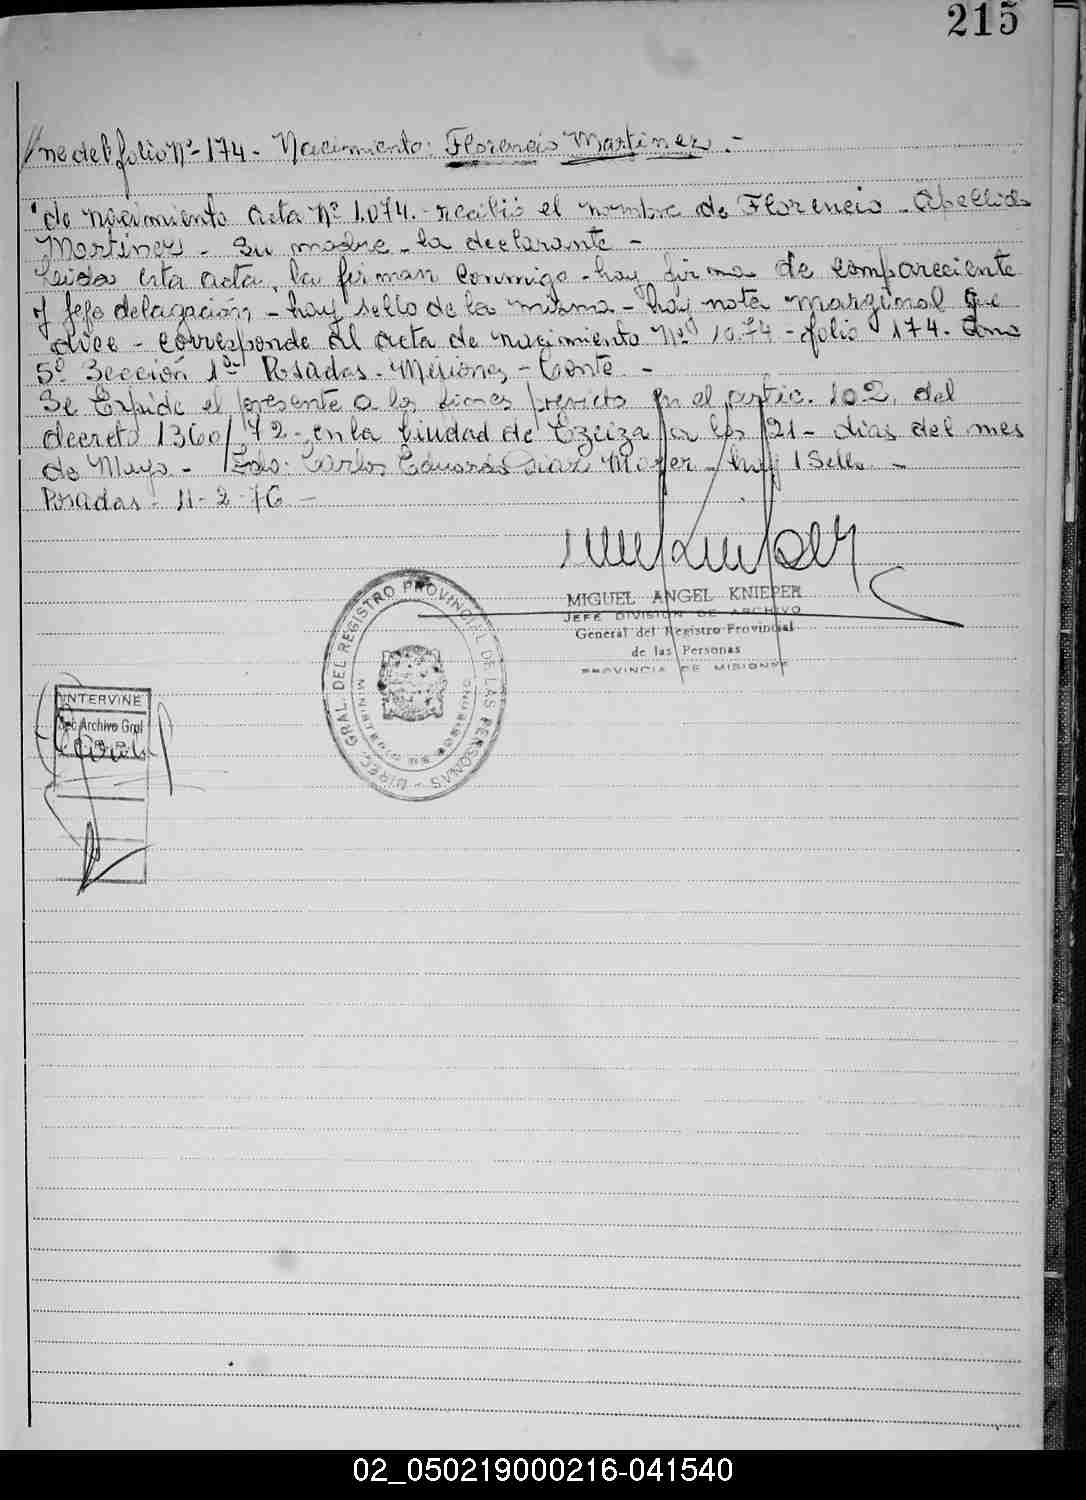 215
//ne del folio Nº 174 - Nacimiento: Florencio Martinez. -
de nacimiento acta Nº 1.074. - recibió el nombre de Florencio - Apellido
Martinez - Su madre - la declarante -
Leida esta acta, la firman conmigo - hay firma de compareciente
y jefe delagación, - hay sello de la misma - hay nota marginal que
dice - corresponde al acta de nacimiento Nº 1074 - folio 174. tomo
5º Sección 1ª Posadas - Misiones - Conste -
Se Expide el presente a los fines previsto en el artic. 102. del
decreto 1360/72 - en la Ciudad de Ezeiza a los 21 - dias del mes
de Mayo - Fdo: Carlos Eduardo Diaz - hay 1 Sello. -
Posadas - 11 - 2 - 76 -
MIGUEL ANGEL KNIEPER
JEFE DIVISION DE ARCHIVO
General del Registro Provincial
de las Personas
PROVINCIA DE MISIONES
DIREC. GRAL. DEL REGISTRO PROVINCIAL DE LAS PERSONAS -
INTERVINE
Sec Archivo Gral
02_050219000216-041540